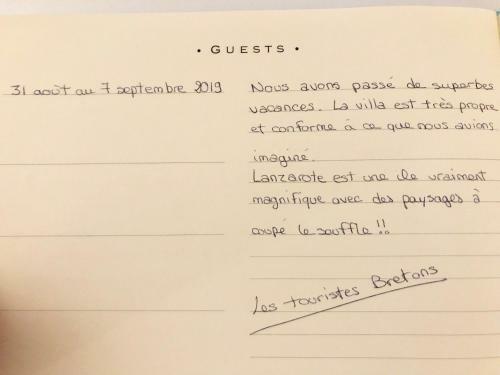 • GUESTS •
31 août au 7 septembre 2019
Nous avons passé de superbes
vacances. La villa est très propre
et conforme à ce que nous avions
imaginé.
Lanzarote est une île vraiment
magnifique avec des paysages à
coupé le souffle !!
Les touristes Bretons